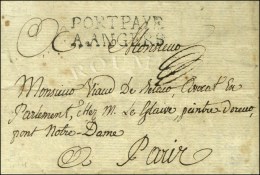 PORT PAYE
A ANGERS
Monsieur
Monsieur Viaud de
Avocat En
Parlement, chez M. Le Glaive, peintre doreur,
pont Notre-Dame
A Paris